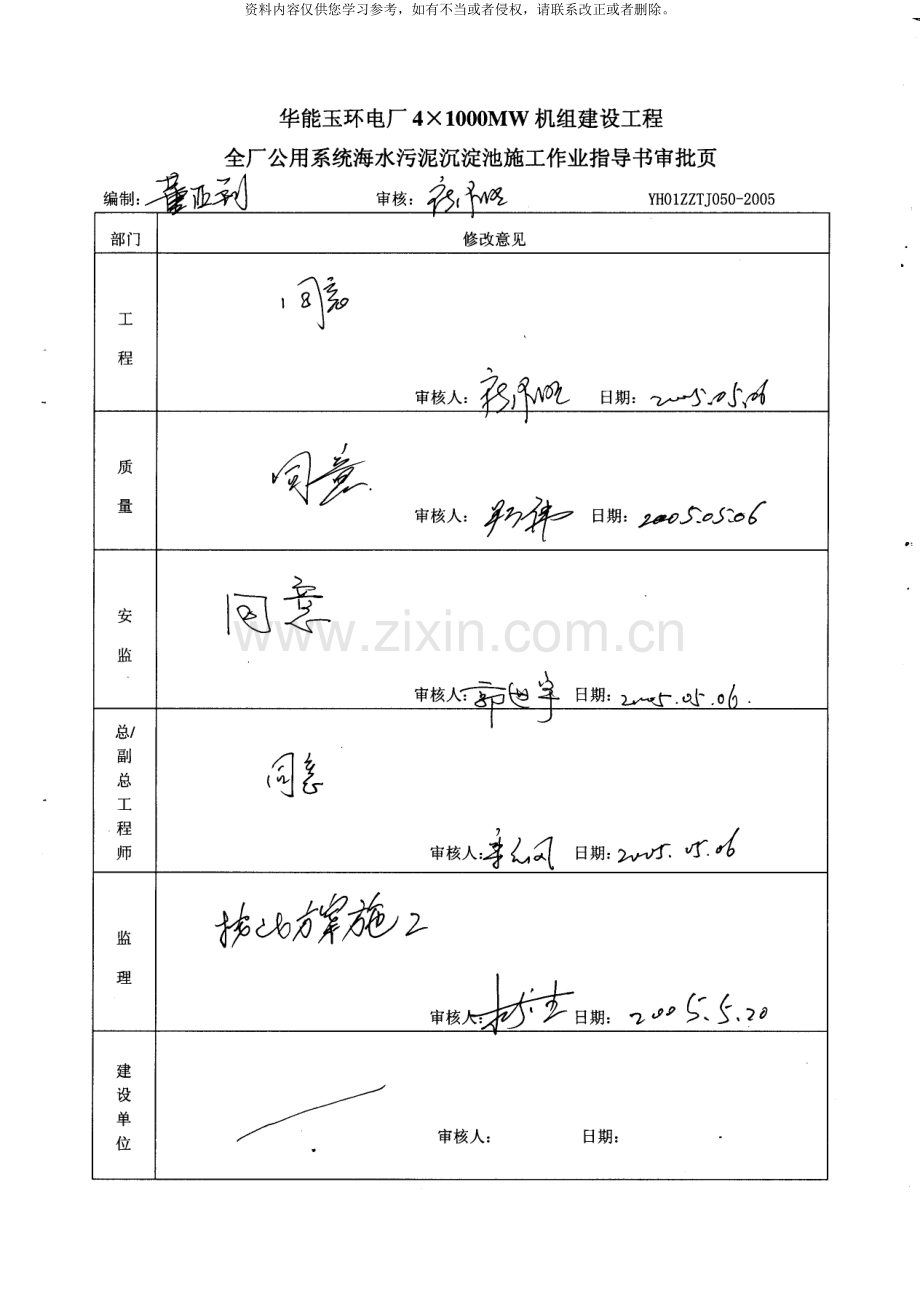 资料内容仅供您学习参考，如有不当或者侵权，请联系改正或者删除。
华能玉环电厂 4×1000MW 机组建设工程
全厂公用系统海水污泥沉淀池施工作业指导书审批页
编制： 审核： YH01ZZTJ050-2005
部门 修改意见
工程
同意
审核人： 日期：2005.05.06
质量
同意
审核人： 日期：2005.05.06
安监
同意
www.zixin.com.cn
审核人： 日期：2005.05.06.
总/副总工程师
同意
审核人： 日期：2005.05.06
监理
按此方案施工
审核人： 日期：2005.5.20
建设单位
审核人： 日期：